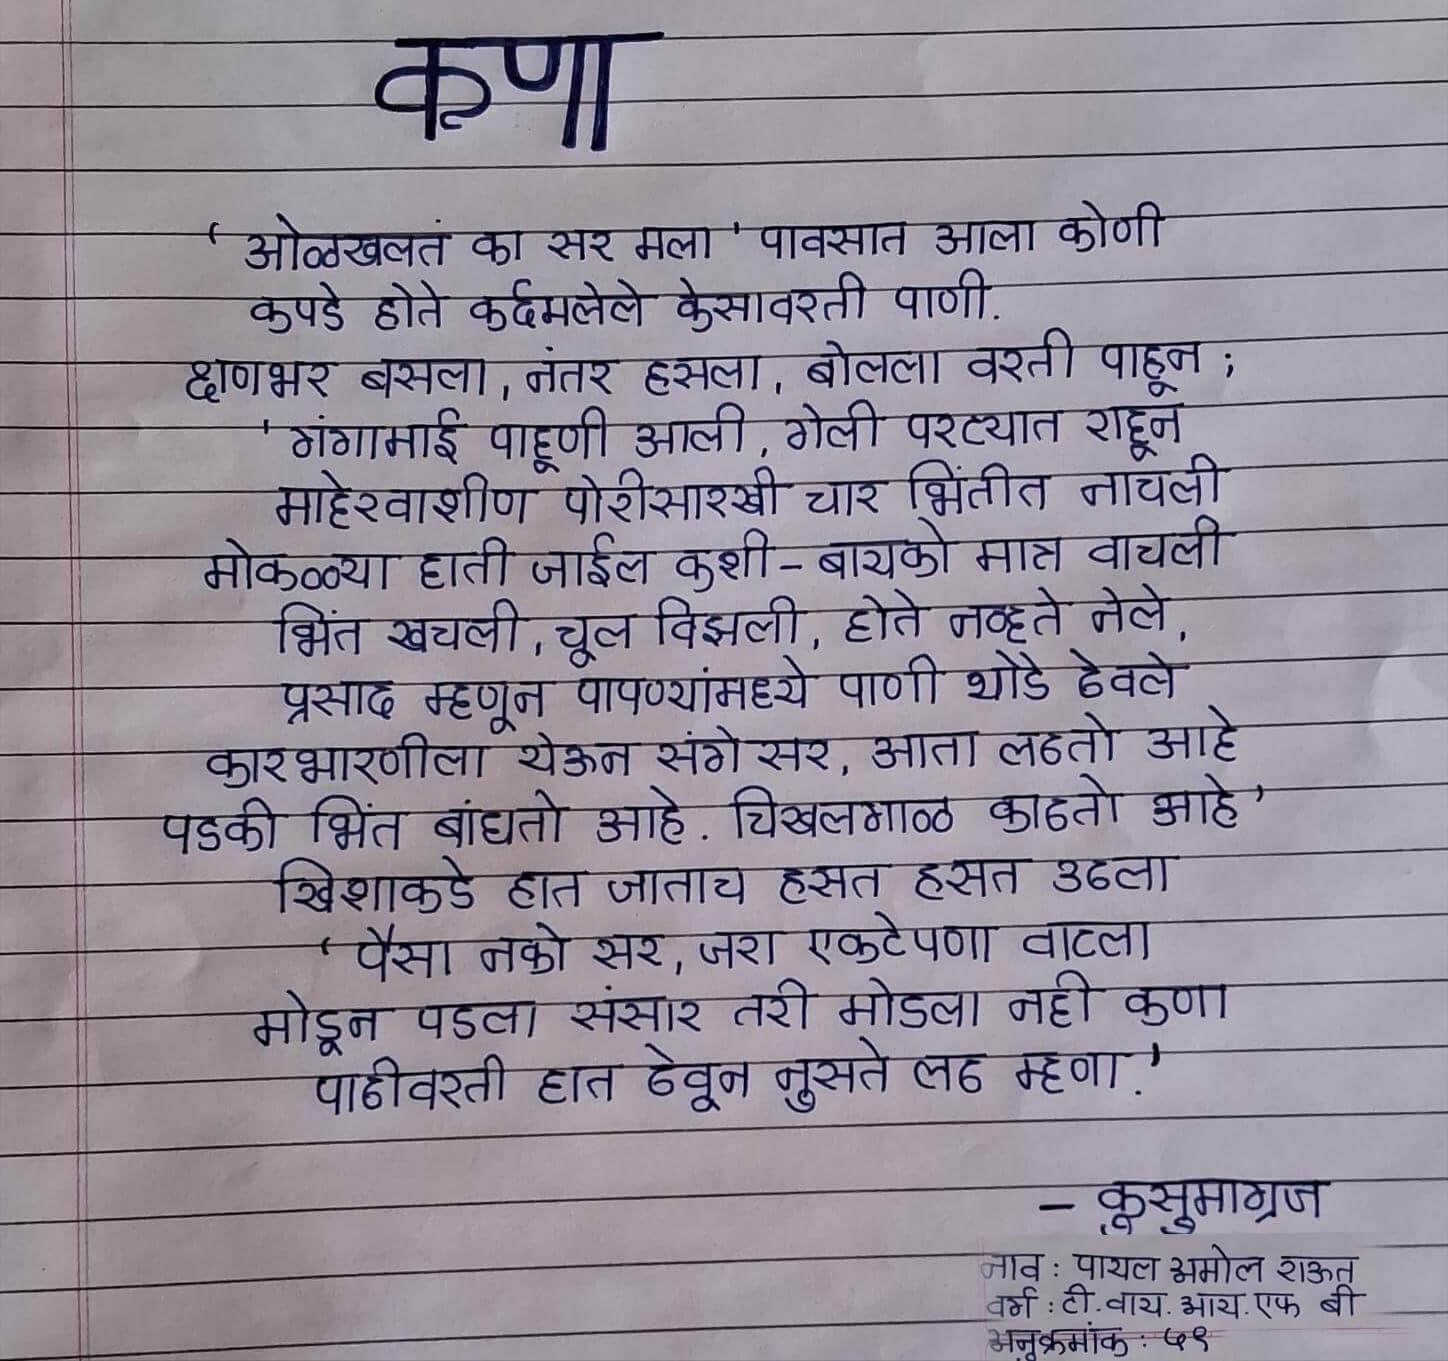 कणा
'ओळखलतं का सर मला' पावसात आला कोणी
कपडे होते कर्दमलेले केसावरती पाणी.
क्षणभर बसला, नंतर हसला, बोलला वरती पाहून ;
'गंगामाई पाहूणी आली, गेली परट्यात राहून
माहेरवाशीण पोरीसारखी चार भिंतीत नाचली
मोकळ्या हाती जाईल कुशी - बायको मात्र वाचली
भिंत खचली, चूल विझली, होते नव्हते नेले,
प्रसाद म्हणून पापण्यांमध्ये पाणी थोडे ठेवले
कारभारणीला येऊन संगे सर, आता लढतो आहे
पडकी भिंत बांधतो आहे. चिखलगाळ काढतो आहे'
खिशाकडे हात जाताच हसत हसत उठला
'पैसा नको सर, जरा एकटेपणा वाटला
मोडून पडला संसार तरी मोडला नही कणा
पाठीवरती हात ठेवून नुसते लढ म्हणा.'
- कूसुमाग्रज
नाव : पायल अमोल राऊत
वर्ग : टी.वाय.आय.एफ बी
अनुक्रमांक : ५९